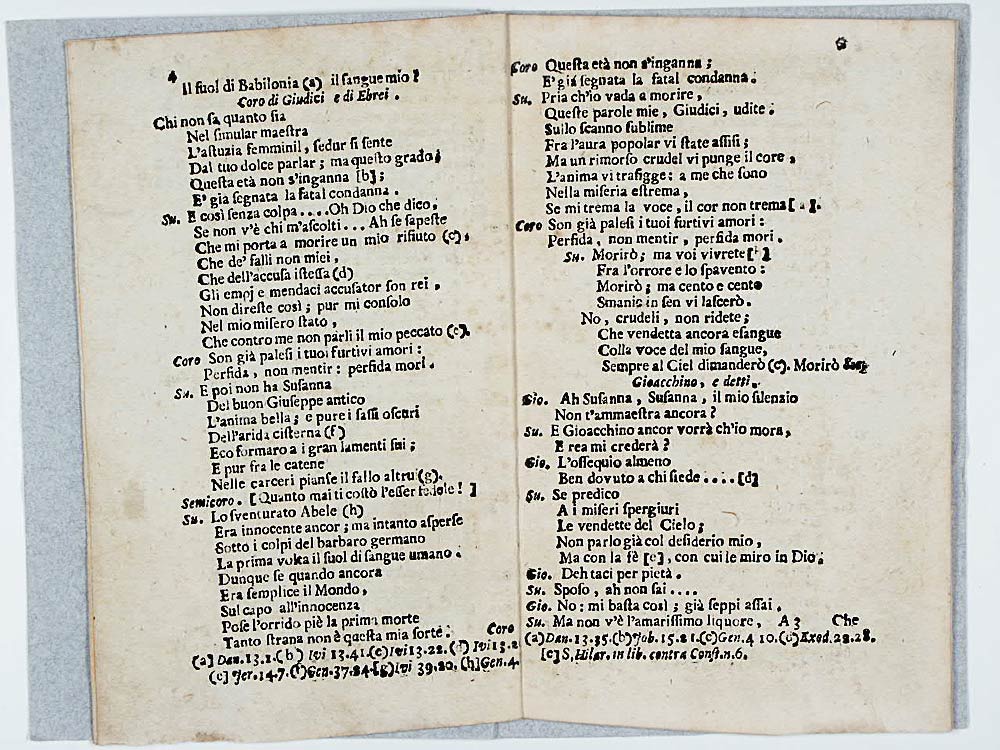 4
Il suol di Babilonia (a) il sangue mio?
Coro di Giudici e di Ebrei.
Chi non sa quanto sia
Nel simular maestra
L'astuzia femminil, sedur si sente
Dal tuo dolce parlar; ma questo grado;
Questa età non s'inganna [b];
E' gia segnata la fatal condanna.
Su. E così senza colpa....Oh Dio che dico.
Se non v'è chi m'ascolti... Ah se sapeste
Che mi porta a morire un mio rifiuto (c),
Che de' falli non miei,
Che dell'accusa istessa (d)
Gli empj e mendaci accusator son rei,
Non direste così; pur mi consolo
Nel mio misero stato,
Che contro me non parli il mio peccato (e).
Coro Son già palesi i tuoi furtivi amori:
Perfida, non mentir: perfida mori.
Su. E poi non ha Susanna
Del buon Giuseppe antico
L'anima bella; e pure i sassi oscuri
Dell'arida cisterna (f)
Eco formaro a i gran lamenti sui;
E pur fra le catene
Nelle carceri pianse il fallo altrui (g).
Semicoro. [Quanto mai ti costò l'esser fedele!]
Su. Lo sventurato Abele (h)
Era innocente ancor; ma intanto asperse
Sotto i colpi del barbaro germano
La prima volta il suol di sangue umano.
Dunque se quando ancora
Era semplice il Mondo,
Sul capo all'innocenza
Pose l'orrido piè la prima morte
Tanto strana non è questa mia sorte.
Coro
(a) Dan. 13.1.(b) Ivi 13.41.(c) Ivi 13.22. (d) Ivi 13.2
(e) Jer. 14.7. (f) Gen. 37.24. (g) Ivi 39.20. (h) Gen. 4.
Coro Questa età non s'inganna;
E' già segnata la fatal condanna.
Su. Pria ch'io vada a morire,
Queste parole mie, Giudici, udite.
Sullo scanno sublime
Fra l'aura popolar vi state assisi;
Ma un rimorso crudel vi punge il core,
L'anima vi trafigge: a me che sono
Nella miseria estrema,
Se mi trema la voce, il cor non trema [a].
Coro Son già palesi i tuoi furtivi amori:
Perfida, non mentir, perfida mori.
Su. Morirò; ma voi vivrete [b]
Fra l'orrore e lo spavento:
Morirò; ma cento e cento
Smanie in sen vi lascerò.
No, crudeli, non ridete;
Che vendetta ancora esangue
Colla voce del mio sangue,
Sempre al Ciel dimanderò (c). Morirò
Gioacchino, e detti.
Gio. Ah Susanna, Susanna, il mio silenzio
Non t'ammaestra ancora?
Su. E Gioacchino ancor vorrà ch'io mora,
E rea mi crederà?
Gio. L'ossequio almeno
Ben dovuto a chi siede....[d]
Su. Se predico
A i miseri spergiuri
Le vendette del Cielo;
Non parlo già col desiderio mio,
Ma con la fè [e], con cui le miro in Dio.
Gio. Deh taci per pietà.
Su. Sposo, ah non sai....
Gio. No: mi basta così; già seppi assai.
Su. Ma non v'è l'amarissimo liquore,
A 3 Che
(a) Dan. 13.35. (b) Job. 15.21. (c) Gen. 4 10. (d) Exod. 22.28.
[e] S. Hilar. in lib. contra Const. n. 6.